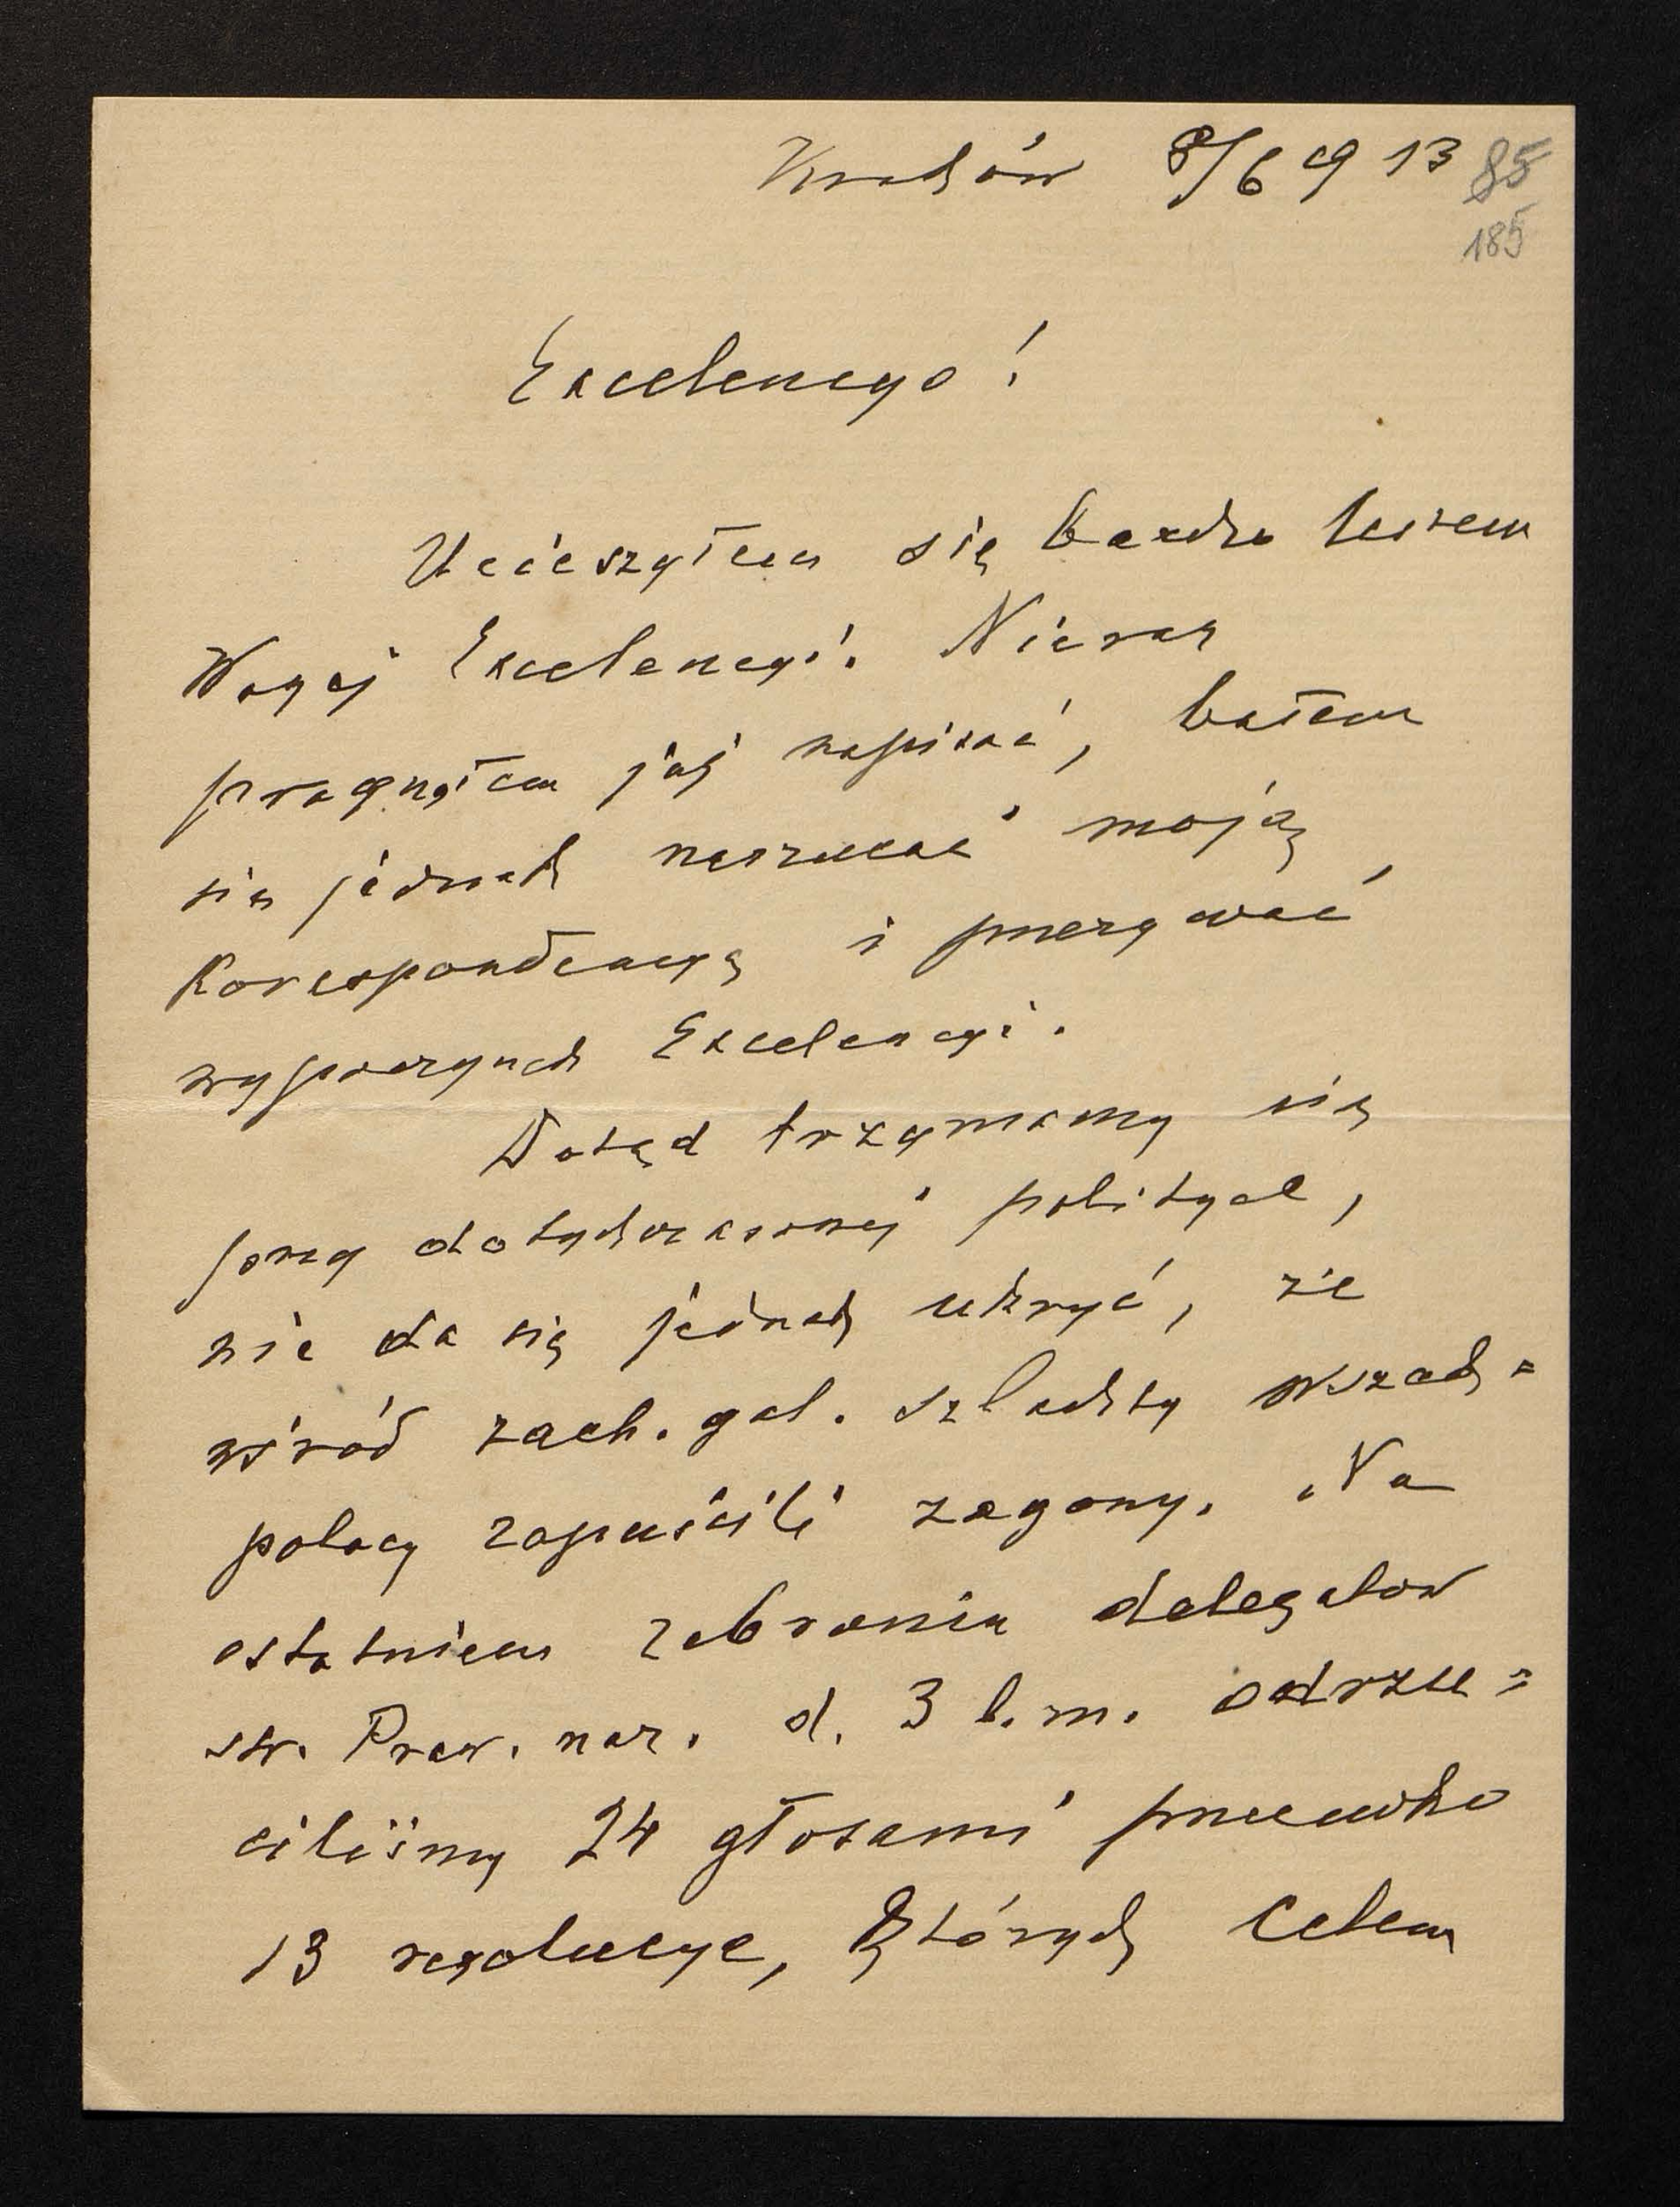 Kraków 8/6 1913 85
185
Excelencyo!
Ucieszyłem się bardzo listem
Waszej Excelencyi. Nieraz
pragnąłem jej napisać, bałem
się jednak narzucać moją
korespondencyą i przerywać
wypoczynek Excelencyi.
Dotąd trzymamy się
przy dotychczasowej polityce,
nie da się jednak ukryć, że
wśród zach. gal. szlachty wszech=
polacy zapuścili zagony. Na
ostatniem zebraniu delegatow
str. Praw. nar. d. 3 b.m. odrzu=
ciliśmy 24 głosami przeciwko
13 rezolucye, których celem